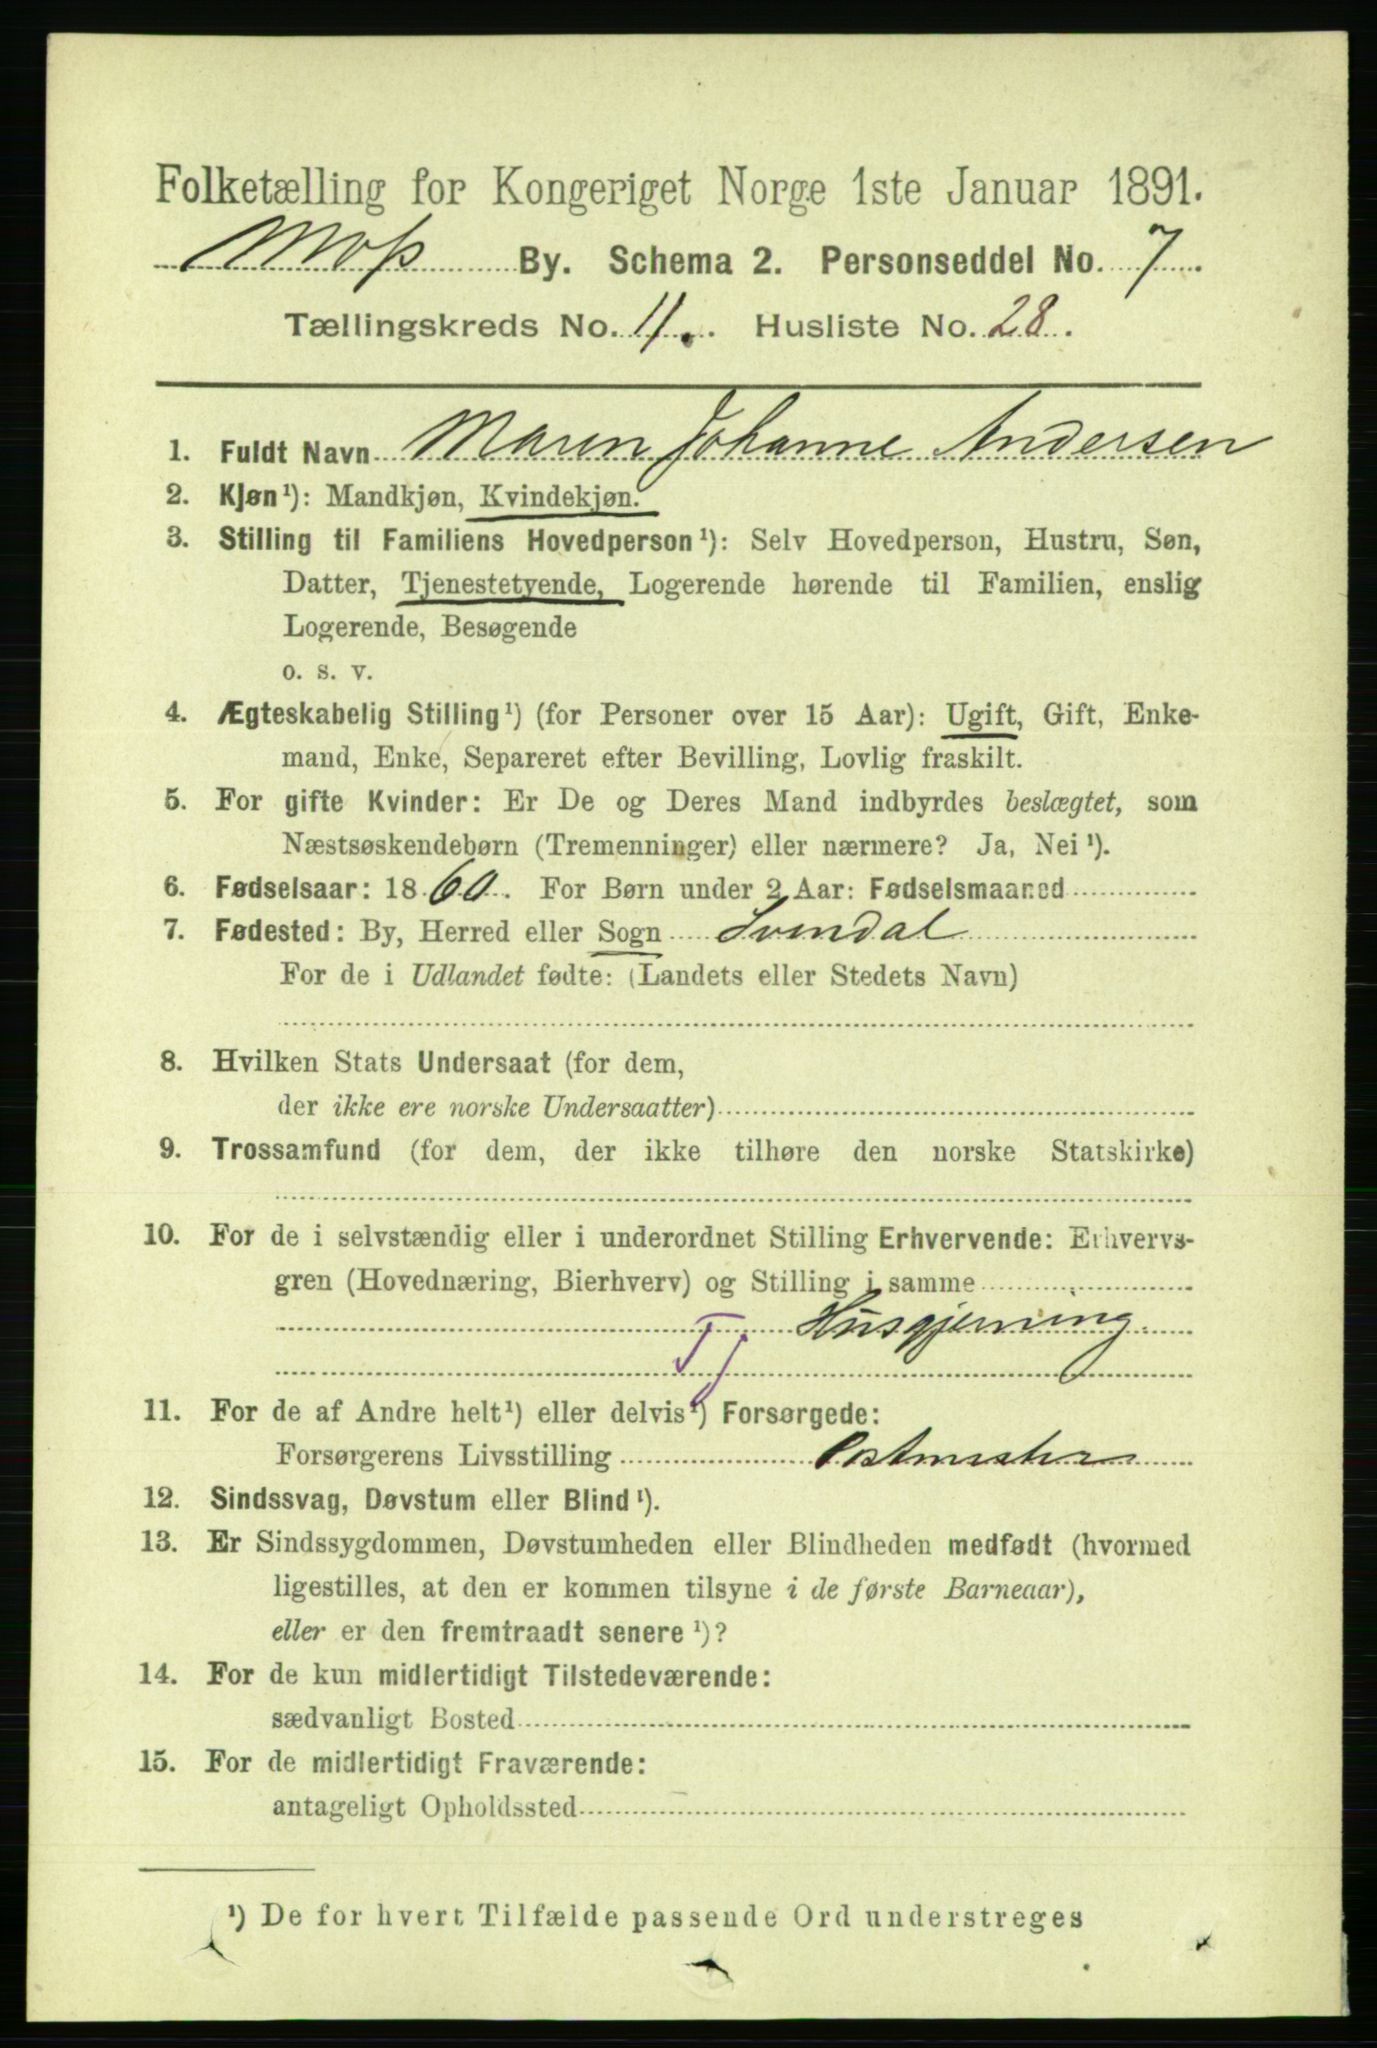 Folketælling for Kongeriget Norge 1ste Januar 1891.
Moss By. Schema 2. Personseddel No. 7
Tællingskreds No. 11. Husliste No. 28.
1. Fuldt Navn Maren Johanne Andersen
2. Kjøn¹): Mandkjøn, Kvindekjøn.
3. Stilling til Familiens Hovedperson¹): Selv Hovedperson, Hustru, Søn,
Datter, Tjenestetyende, Logerende hørende til Familien, enslig
Logerende, Besøgende
o. s. v.
4. Ægteskabelig Stilling¹) (for Personer over 15 Aar): Ugift, Gift, Enke-
mand, Enke, Separeret efter Bevilling, Lovlig fraskilt.
5. For gifte Kvinder: Er De og Deres Mand indbyrdes beslægtet, som
Næstsøskendebørn (Tremenninger) eller nærmere? Ja, Nei¹).
6. Fødselsaar: 1860. For Børn under 2 Aar: Fødselsmaaned
7. Fødested: By, Herred eller Sogn Svindal
For de i Udlandet fødte: (Landets eller Stedets Navn)
8. Hvilken Stats Undersaat (for dem,
der ikke ere norske Undersaatter)
9. Trossamfund (for dem, der ikke tilhøre den norske Statskirke)
10. For de i selvstændig eller i underordnet Stilling Erhvervende: Erhvervs-
gren (Hovednæring, Bierhverv) og Stilling i samme
Husgjerning
Tj
11. For de af Andre helt¹) eller delvis¹) Forsørgede:
Forsørgerens Livsstilling Postmester
12. Sindssvag, Døvstum eller Blind¹).
13. Er Sindssygdommen, Døvstumheden eller Blindheden medfødt (hvormed
ligestilles, at den er kommen tilsyne i de første Barneaar),
eller er den fremtraadt senere¹)?
14. For de kun midlertidigt Tilstedeværende:
sædvanligt Bosted
15. For de midlertidigt Fraværende:
antageligt Opholdssted
¹) De for hvert Tilfælde passende Ord understreges